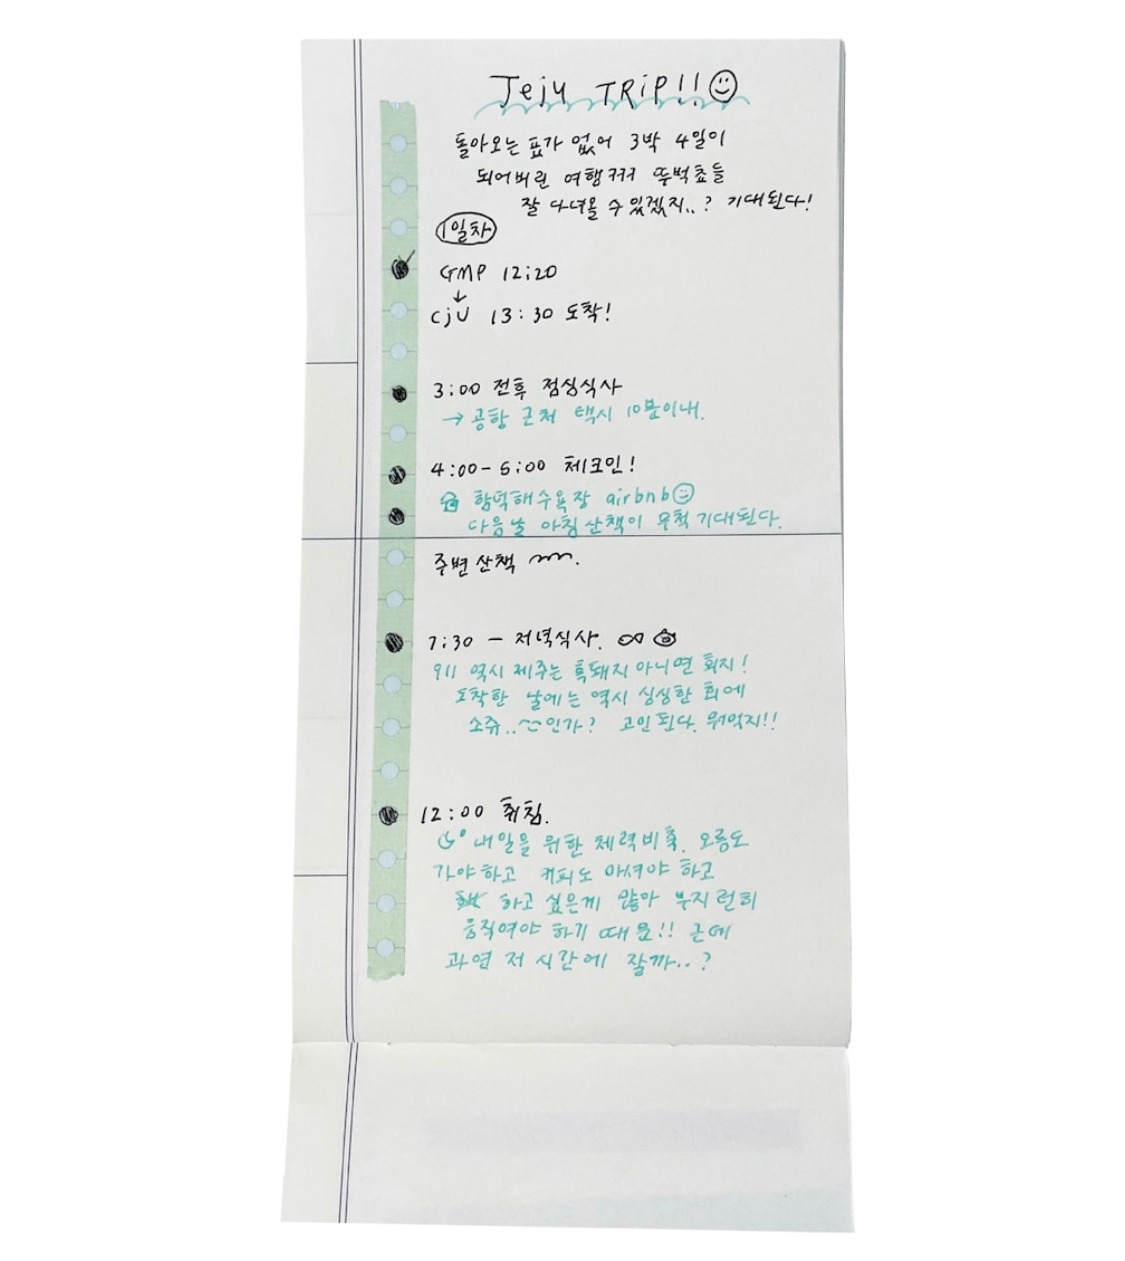 Jeju TRiP!!
돌아오는 표가 없어 3박 4일이
되어버린 여행ㅋㅋㅋ 뚜벅쵸들
잘 다녀올 수 있겠지..? 기대된다!
1일차
GMP 12:20
↓
CjU 13:30 도착!
3:00 전후 점심식사
→ 공항 근처 택시 10분이내.
4:00-5:00 체크인!
함덕해수욕장 airbnb
다음날 아침 산책이 무척 기대된다.
주변산책
7:30 - 저녁식사.
역시 제주는 흑돼지 아니면 회지!
도착한 날에는 역시 싱싱한 회에
소쥬..인가? 고민된다. 뭐먹지!!
12:00 취침.
내일을 위한 체력비축. 오름도
가야하고 커피도 마셔야 하고
하고 싶은게 많아 부지런히
움직여야 하기 때문!! 근데
과연 저 시간에 잘까..?